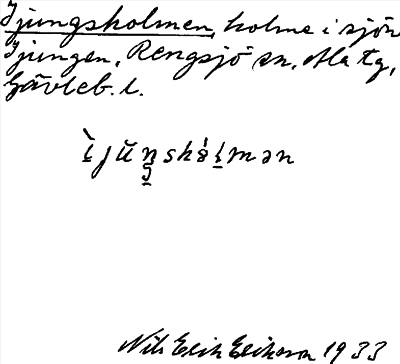 Ijungsholmen, holme i sjön
Ijungen, Rengsjö sn, Ala tg,
Gävleb. l.
Nils Erik Erikson 1933